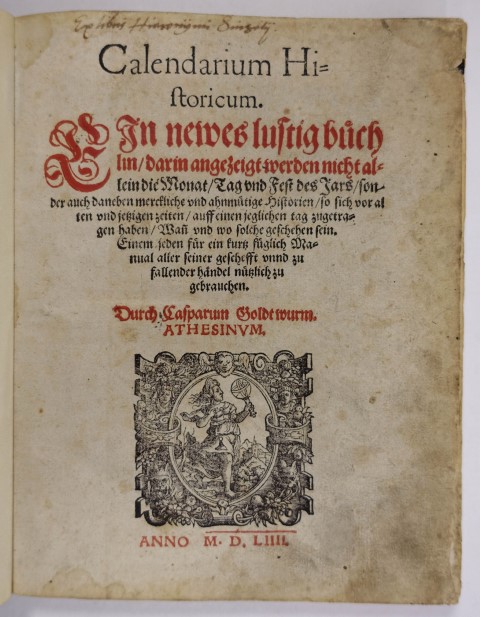 Ex libris Hieronymi
Calendarium Hi=
storicum.
EIn newes lustig buͤch
lin / darin angezeigt werden nicht al=
lein die Monat / Tag vnd Fest des Jars / son=
der auch daneben merckliche vnd ahnmuͤtige Historien / so sich vor al
ten vnd jetzigen zeiten / auff einen jeglichen tag zugetra=
gen haben / Wañ vnd wo solche geschehen sein.
Einem jeden fuͤr ein kurtz fuͤglich Ma=
nual aller seiner geschefft vnnd zu
fallender haͤndel nuͤtzlich zu
gebrauchen.
Durch Casparum Goldtwurm.
ATHESINVM.
ANNO M. D. LIIII.